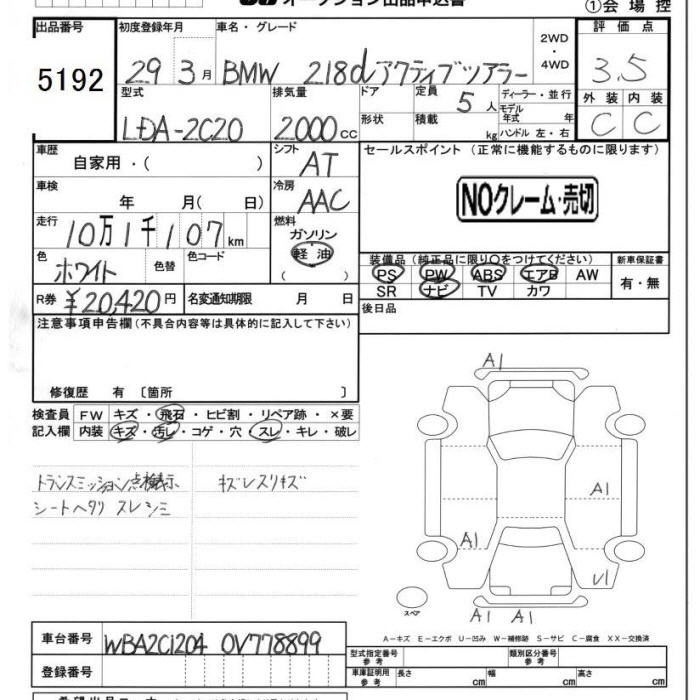 オークション出品申込書
①会場控
出品番号 初度登録年月 車名・グレード 2WD・4WD 評価点
5192 29 3月 BMW 218dアクティブツアラー 3.5
型式 排気量 ドア 定員 5人 ディーラー・並行 外装 内装
LDA-2C20 2.000cc 形状 積載 kg モデル年式 年 ハンドル 左・右 C C
車歴 自家用・( ) シフト AT セールスポイント (正常に機能するものに限ります)
車検 年 月(日) 冷房 AAC NOクレーム・売切
走行 10万1千107km 燃料 ガソリン 軽油 ( )
色 ホワイト 色替 色コード 装備品 (純正品に限り○をつけてください) 新車保証書
PS PW ABS エアB AW 有・無
R券 ¥20,420円 名変通知期限 月 日 SR ナビ TV カワ
注意事項申告欄(不具合内容等は具体的に記入して下さい) 後日品
修復歴 有 〔箇所 〕
検査員 FW キズ・飛石・ヒビ割・リペア跡・×要
記入欄 内装 キズ・汚レ・コゲ・穴・スレ・キレ・破レ
トランスミッション点検表示 キズレスリキズ
シートヘタリ スレシミ
A1
A1
A1
U1
A1 A1
スペア
A-キズ E-エクボ U-凹み W-補修跡 S-サビ C-腐食 XX-交換済
車台番号 WBA2C1204 0V778899 型式指定番号 参考 類別区分番号 参考
登録番号 車庫証明用 参考 長さ cm 幅 cm 高さ cm